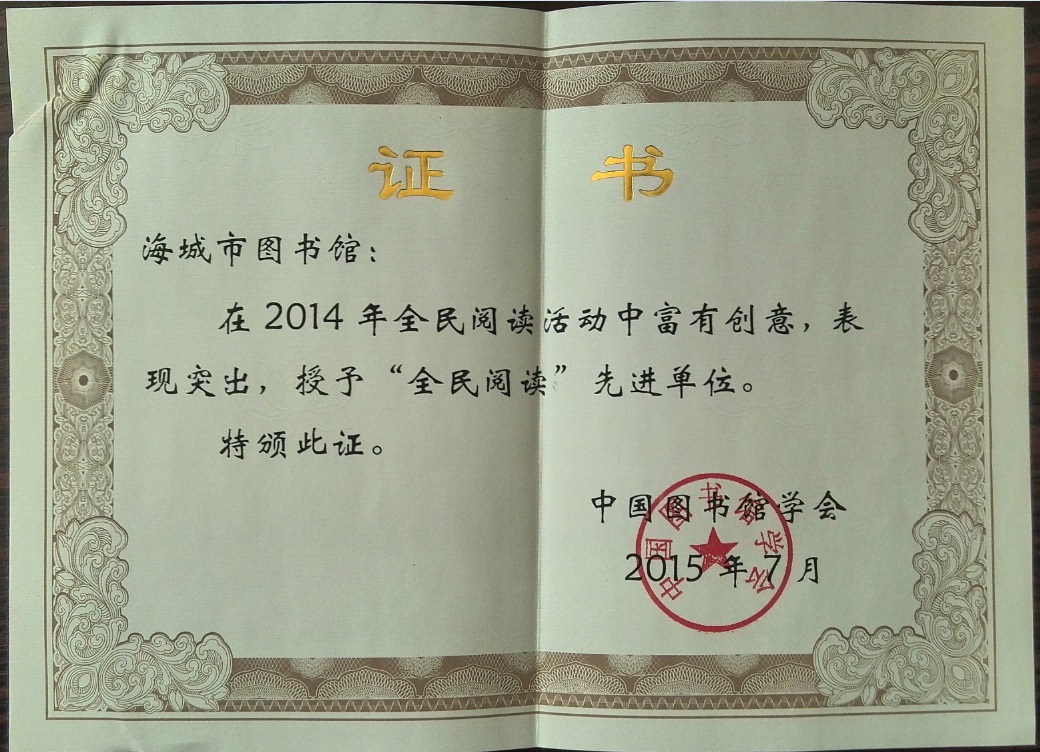 证 书
海城市图书馆：
在 2014 年全民阅读活动中富有创意，表
现突出，授予“全民阅读”先进单位。
特颁此证。
中国图书馆学会
2015 年 7 月
中国图书馆学会